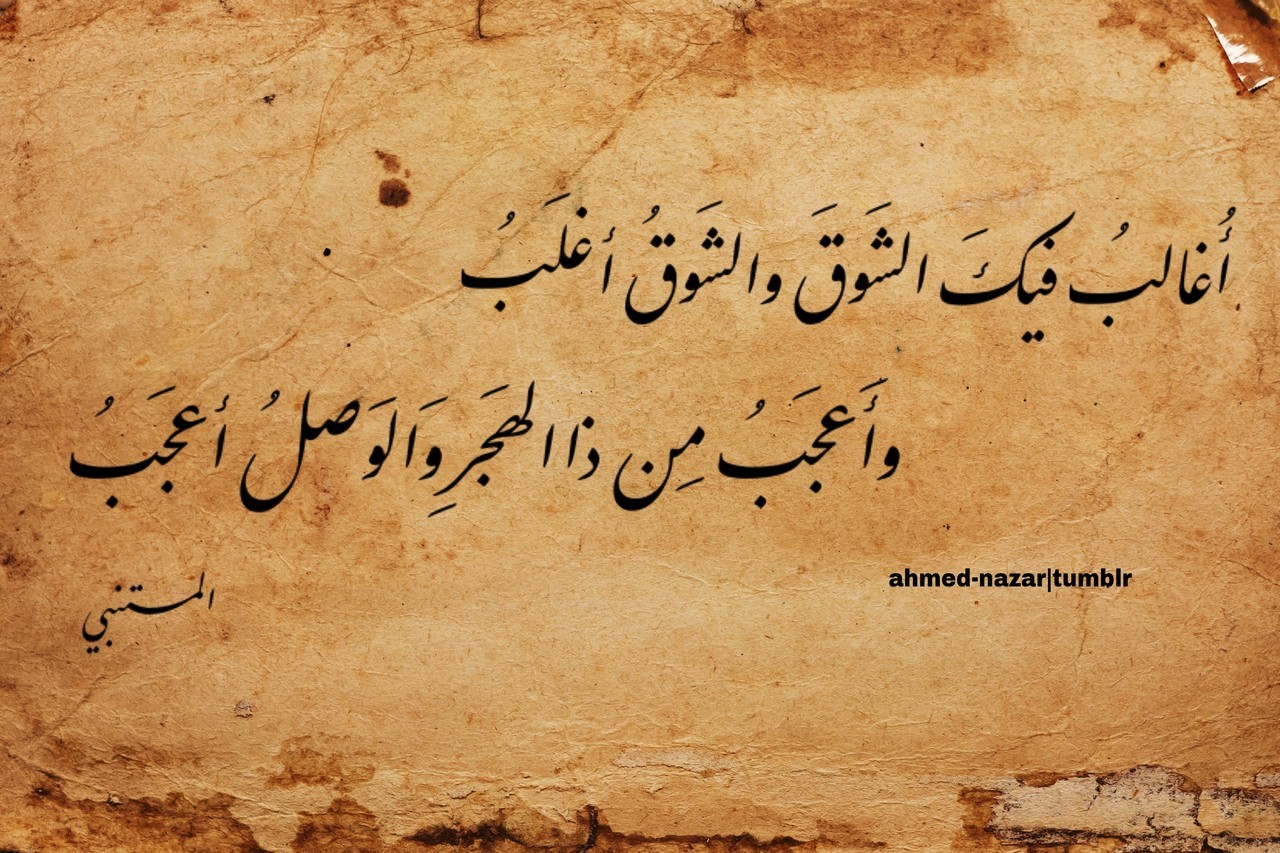 أُغالبُ فيكَ الشَوَقَ والشَوقُ أغلَبُ
وأَعجَبُ مِن ذا الهَجَرِ وَالوَصلُ أعجَبُ
المتنبي
ahmed-nazar|tumblr